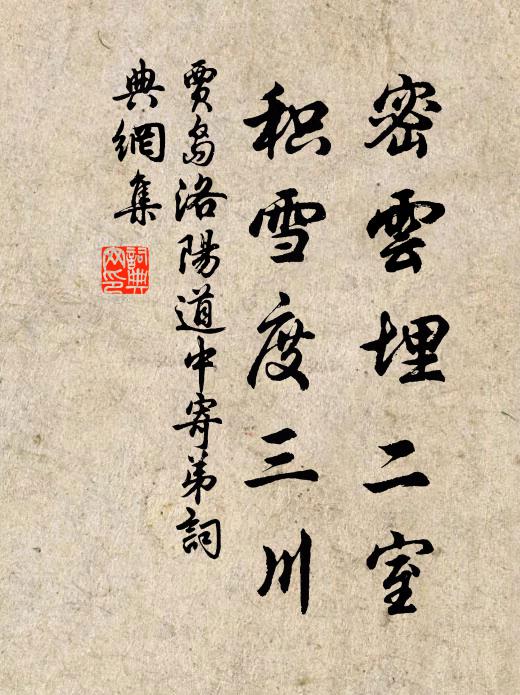 密雲埋二室
积雪度三川
賈島洛陽道中寄弟詞
典網集
詞典